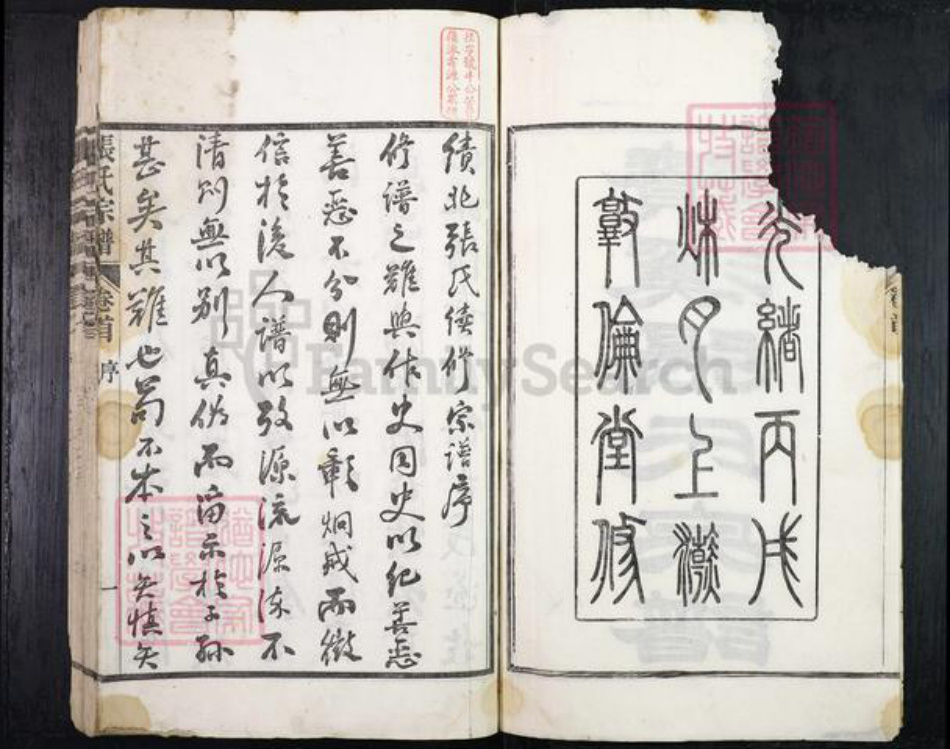 光緒丙戌
秋月上澣
敦倫堂修
績北張氏續修宗譜序
修譜之難與作史同史以紀善惡
善惡不分則無以彰炯戒而徵
信於後人譜以攷源流源流不
清則無以別真偽而滋示於子孫
甚矣其難也苟不本之以矢慎矢
張氏宗譜
卷首
序
一
FamilySearch